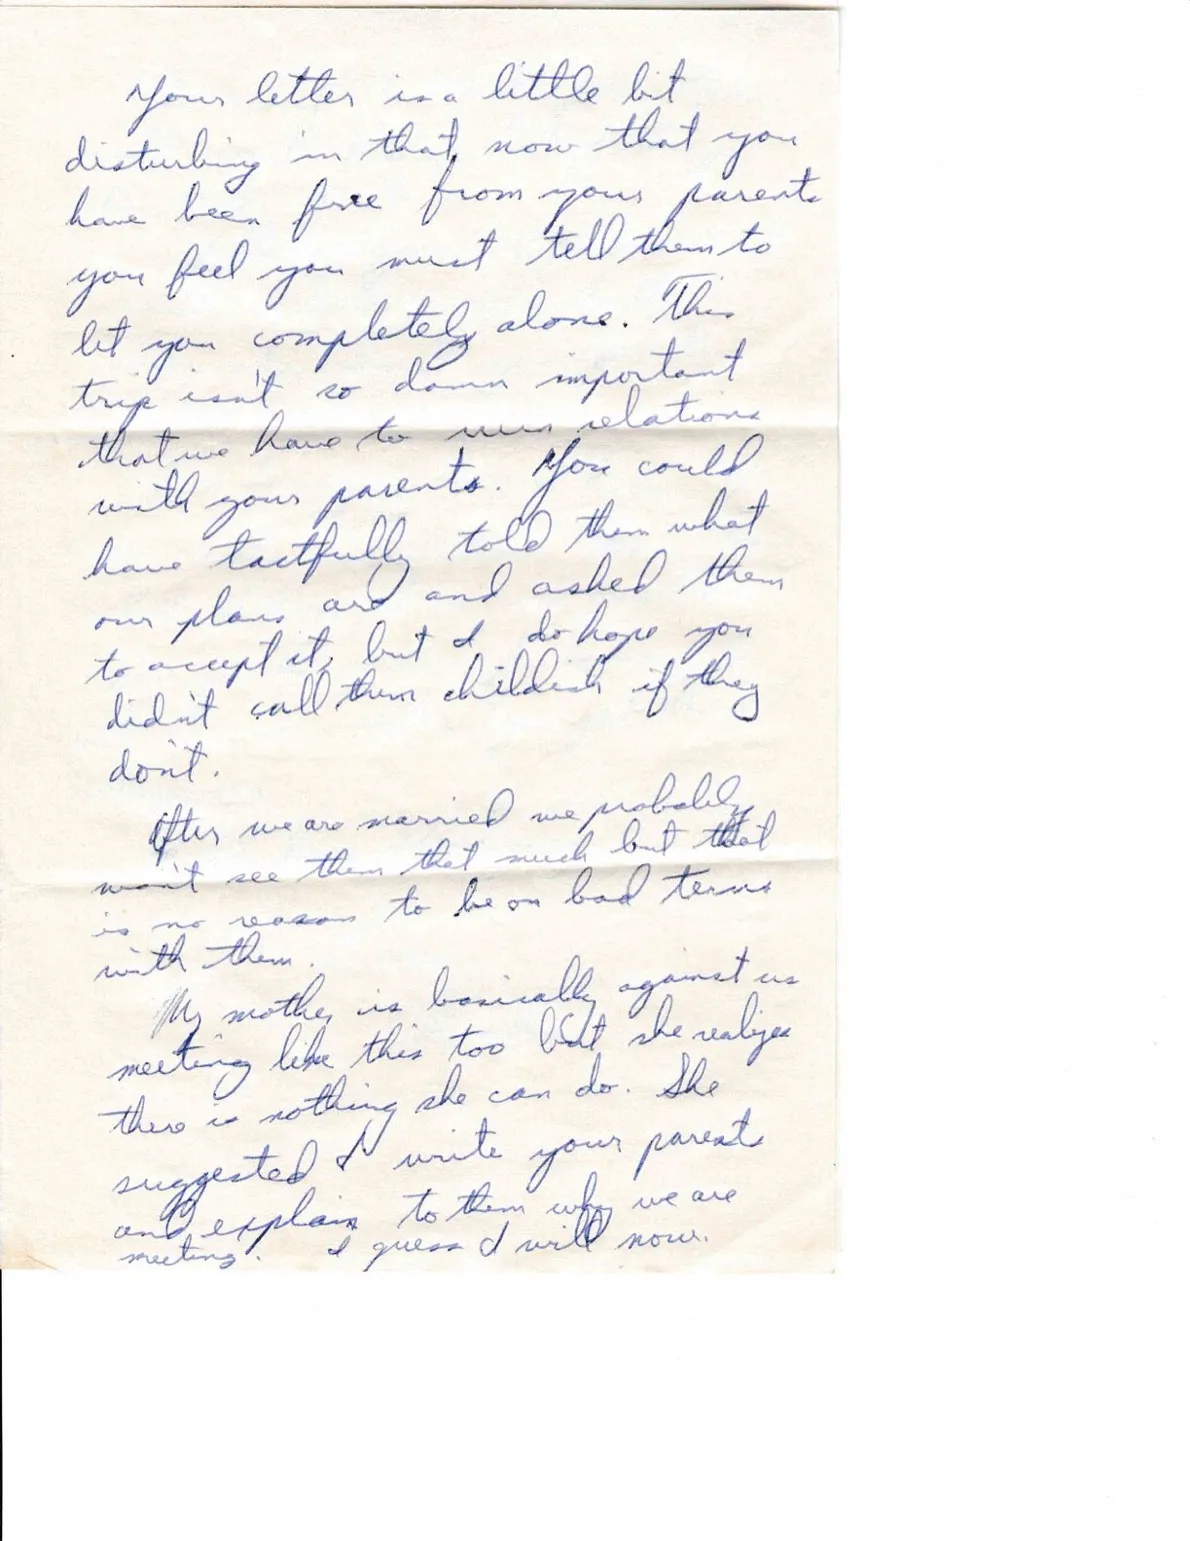 Your letter is a little bit
disturbing in that now that you
have been free from your parents
you feel you must tell them to
let you completely alone. This
trip isn't so damn important
that we have to ruin relations
with your parents. You could
have tactfully told them what
our plans are and asked them
to accept it, but I do hope you
didn't call them childish if they
don't.
After we are married we probably
won't see them that much but that
is no reason to be on bad terms
with them.
My mother is basically against us
meeting like this too but she realizes
there is nothing she can do. She
suggested I write your parents
and explain to them why we are
meeting. I guess I will now.